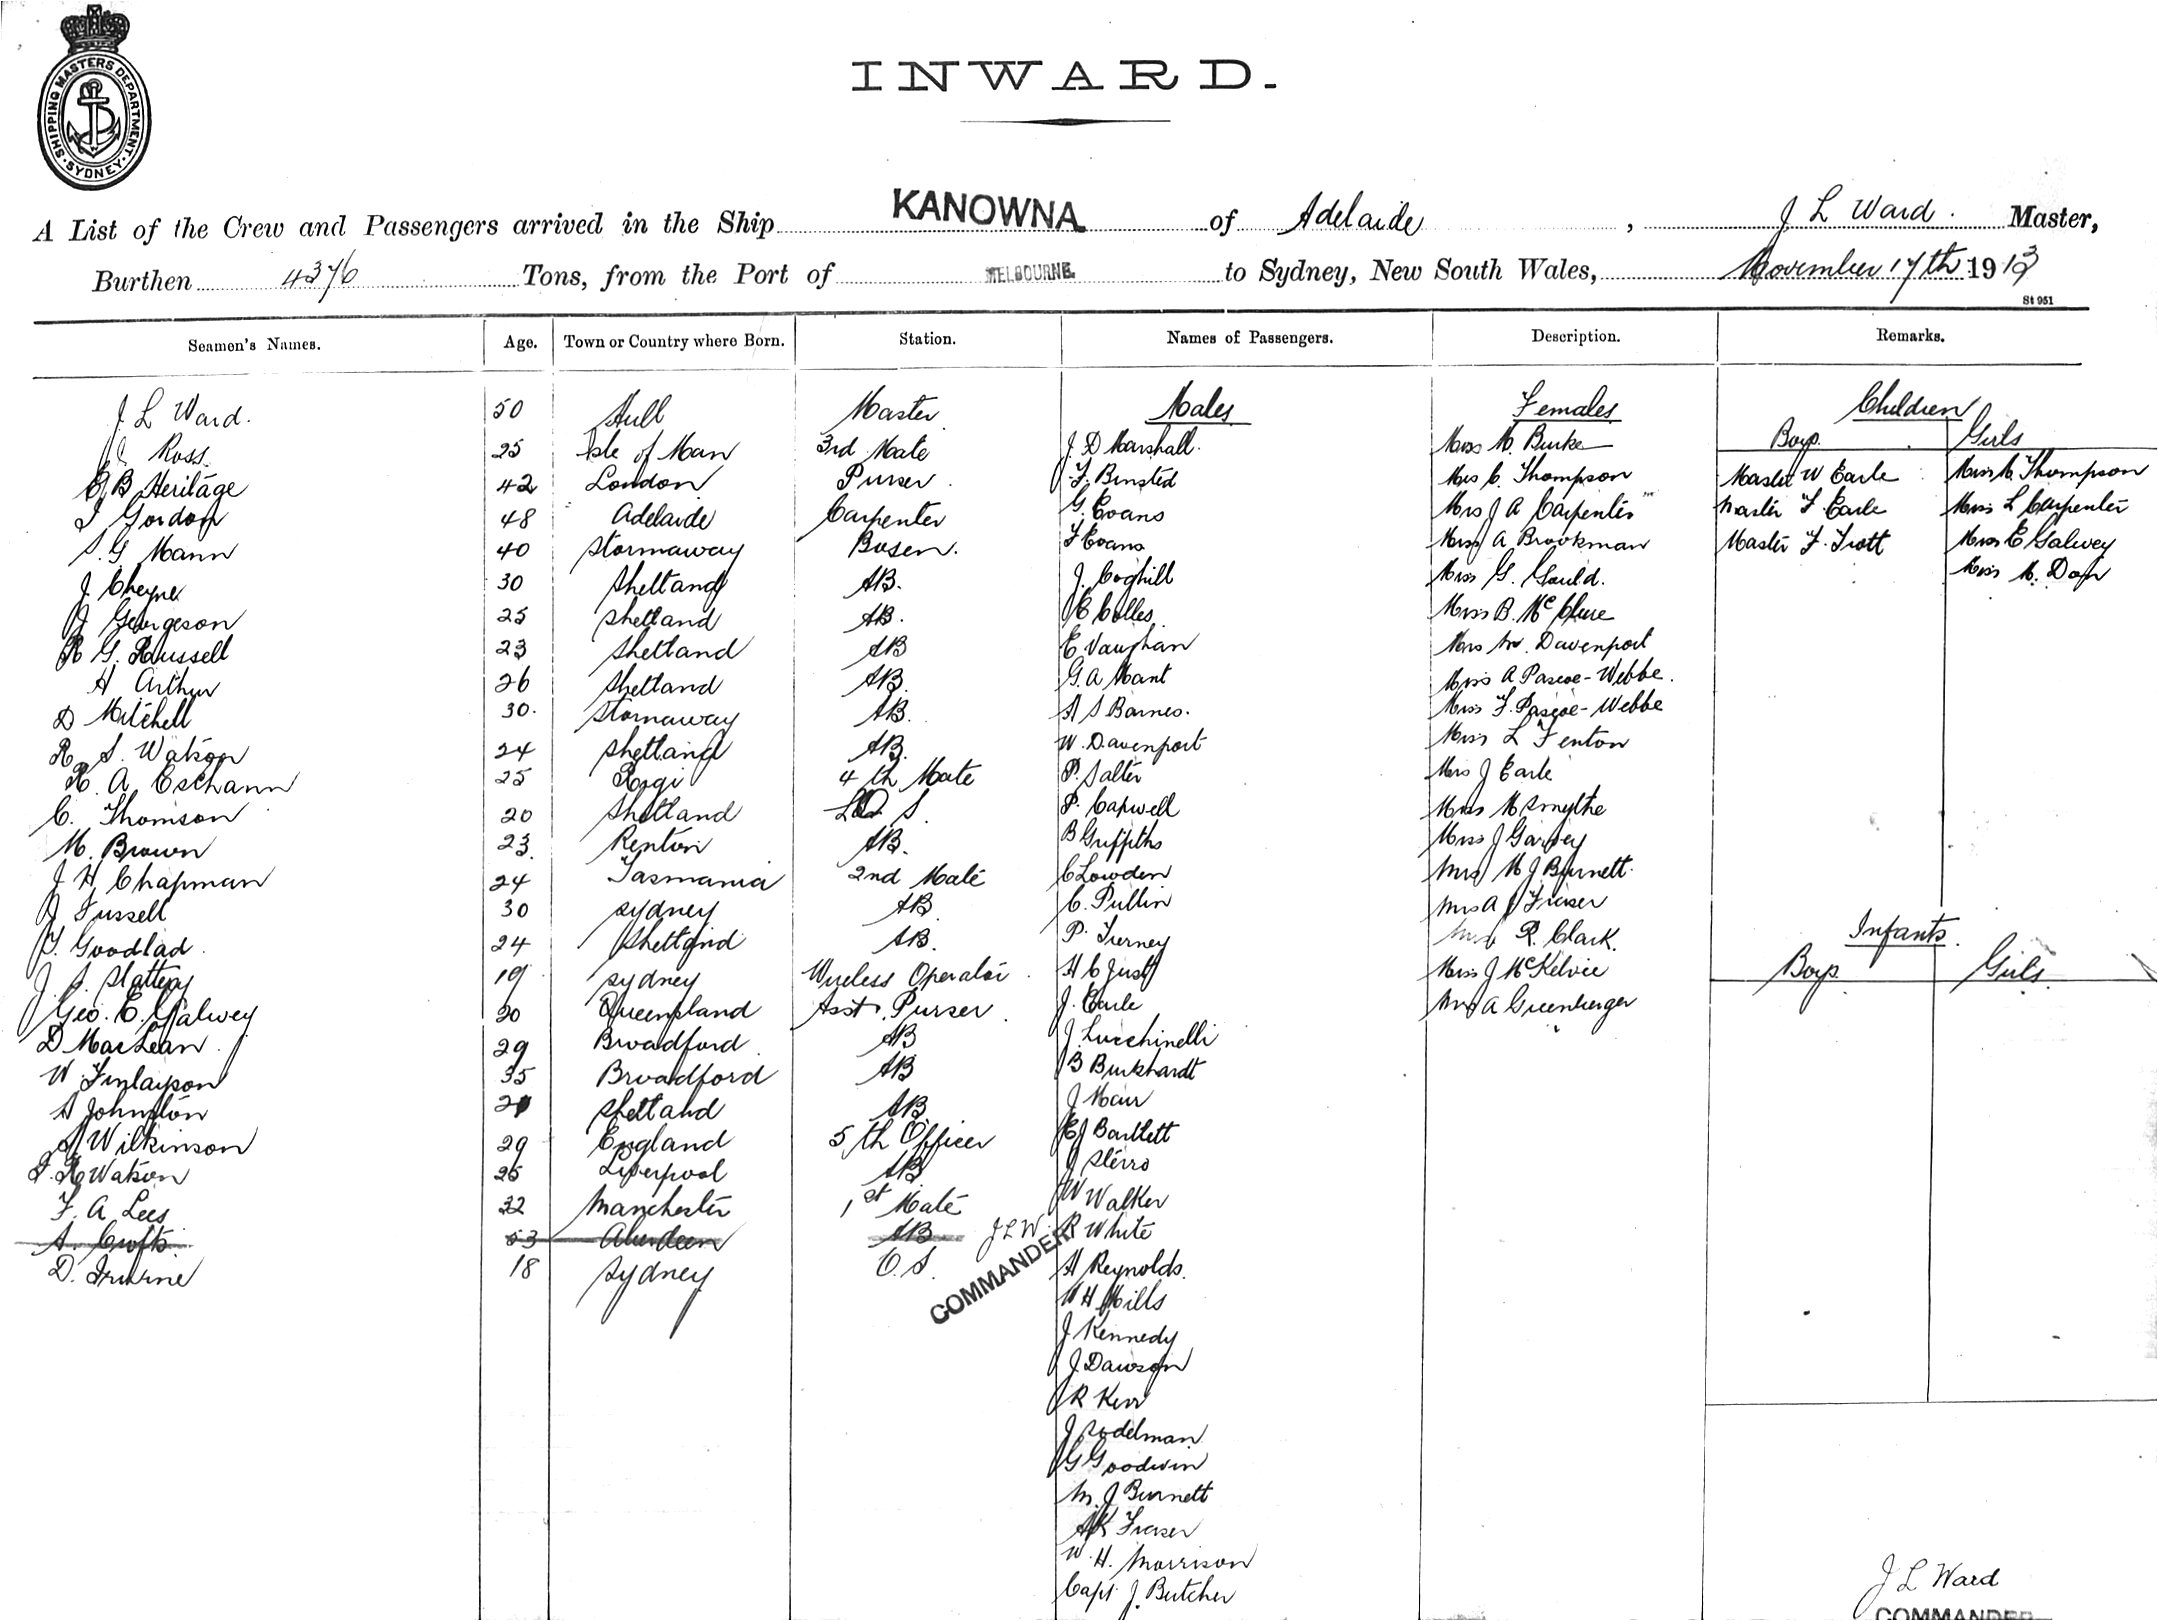 SHIPPING MASTERS DEPARTMENT · SYDNEY ·
INWARD.
A List of the Crew and Passengers arrived in the Ship KANOWNA of Adelaide, J L Ward. Master,
Burthen 4376 Tons, from the Port of MELBOURNE to Sydney, New South Wales, November 17th 1913
St 951
Seamen's Names. Age. Town or Country where Born. Station. Names of Passengers. Description. Remarks.
J L Ward. 50 Hull Master Males Females Children
J Ross. 25 Isle of Man 3rd Mate J. D Marshall. Miss M. Burke Boys. Girls
E B Heritage 42 London Purser F. Binsted Mrs C. Thompson Master W Earle Miss C Thompson
J Gordon 48 Adelaide Carpenter G. Evans Mrs J A Carpenter Master F. Earle Miss L Carpenter
S. G Mann 40 Stornaway Bosen. F Evans Miss A Brookman Master F. Trott Miss E Galwey
J. Cheyne 30 Shetland AB. J. Coghill Miss G. Gould. Miss M. Day
J Georgeson 25 Shetland AB. E Colles. Miss B. McClure
R G. Russell 23 Shetland AB E Vaughan Mrs W. Davenport
H Arthur 26 Shetland AB. G. A Mant Miss A Pascoe-Webbe.
D Mitchell 30. Stornaway AB. H S Barnes. Miss F. Pascoe-Webbe
R. S. Watson 24 Shetland AB. W. Davenport Miss L Fenton
R. A. Eschann 25 Rogi 4th Mate P. Salter Mrs J Earle
C. Thomson 20 Shetland S. P. Capwell Miss M Smythe
M. Brown 23. Renton AB. B Griffiths Miss J Garvey
J H. Chapman 24 Tasmania 2nd Mate C Lowden Mrs M J Burnett.
J Fussell 30 Sydney AB C. Pullin Mrs A J Fraser
J. Goodlad. 24 Shetland AB. P. Tierney R. Clark. Infants.
J. J. Slattery 19 Sydney Wireless Operator H C Just Miss J McKelvie Boys. Girls.
Geo. E. Galwey 20 Queensland Asst. Purser J. Earle Mrs A Greenberger
D MacLean. 29 Broadford AB J. Lucchinelli
W. Finlayson 35 Broadford AB B Burkhardt
A Johnston Shetland AB. J Mair
Wilkinson 29 England 5th Officer E J Bartlett
J. R Watson 25 Liverpool AB J Sterro
F. A. Lees 32 Manchester 1st Mate W Walker
A. Crofts. 53 Aberdeen AB J L W. R White
D. Irvine 18 Sydney O.S. H Reynolds.
COMMANDER
W H Mills
J Kennedy
J. Dawson
R Kerr
J. Sodelman.
G Goodwin
M. J Burnett
A K Fraser
W. H. Morrison
Capt. J. Butcher
J L Ward
COMMANDER